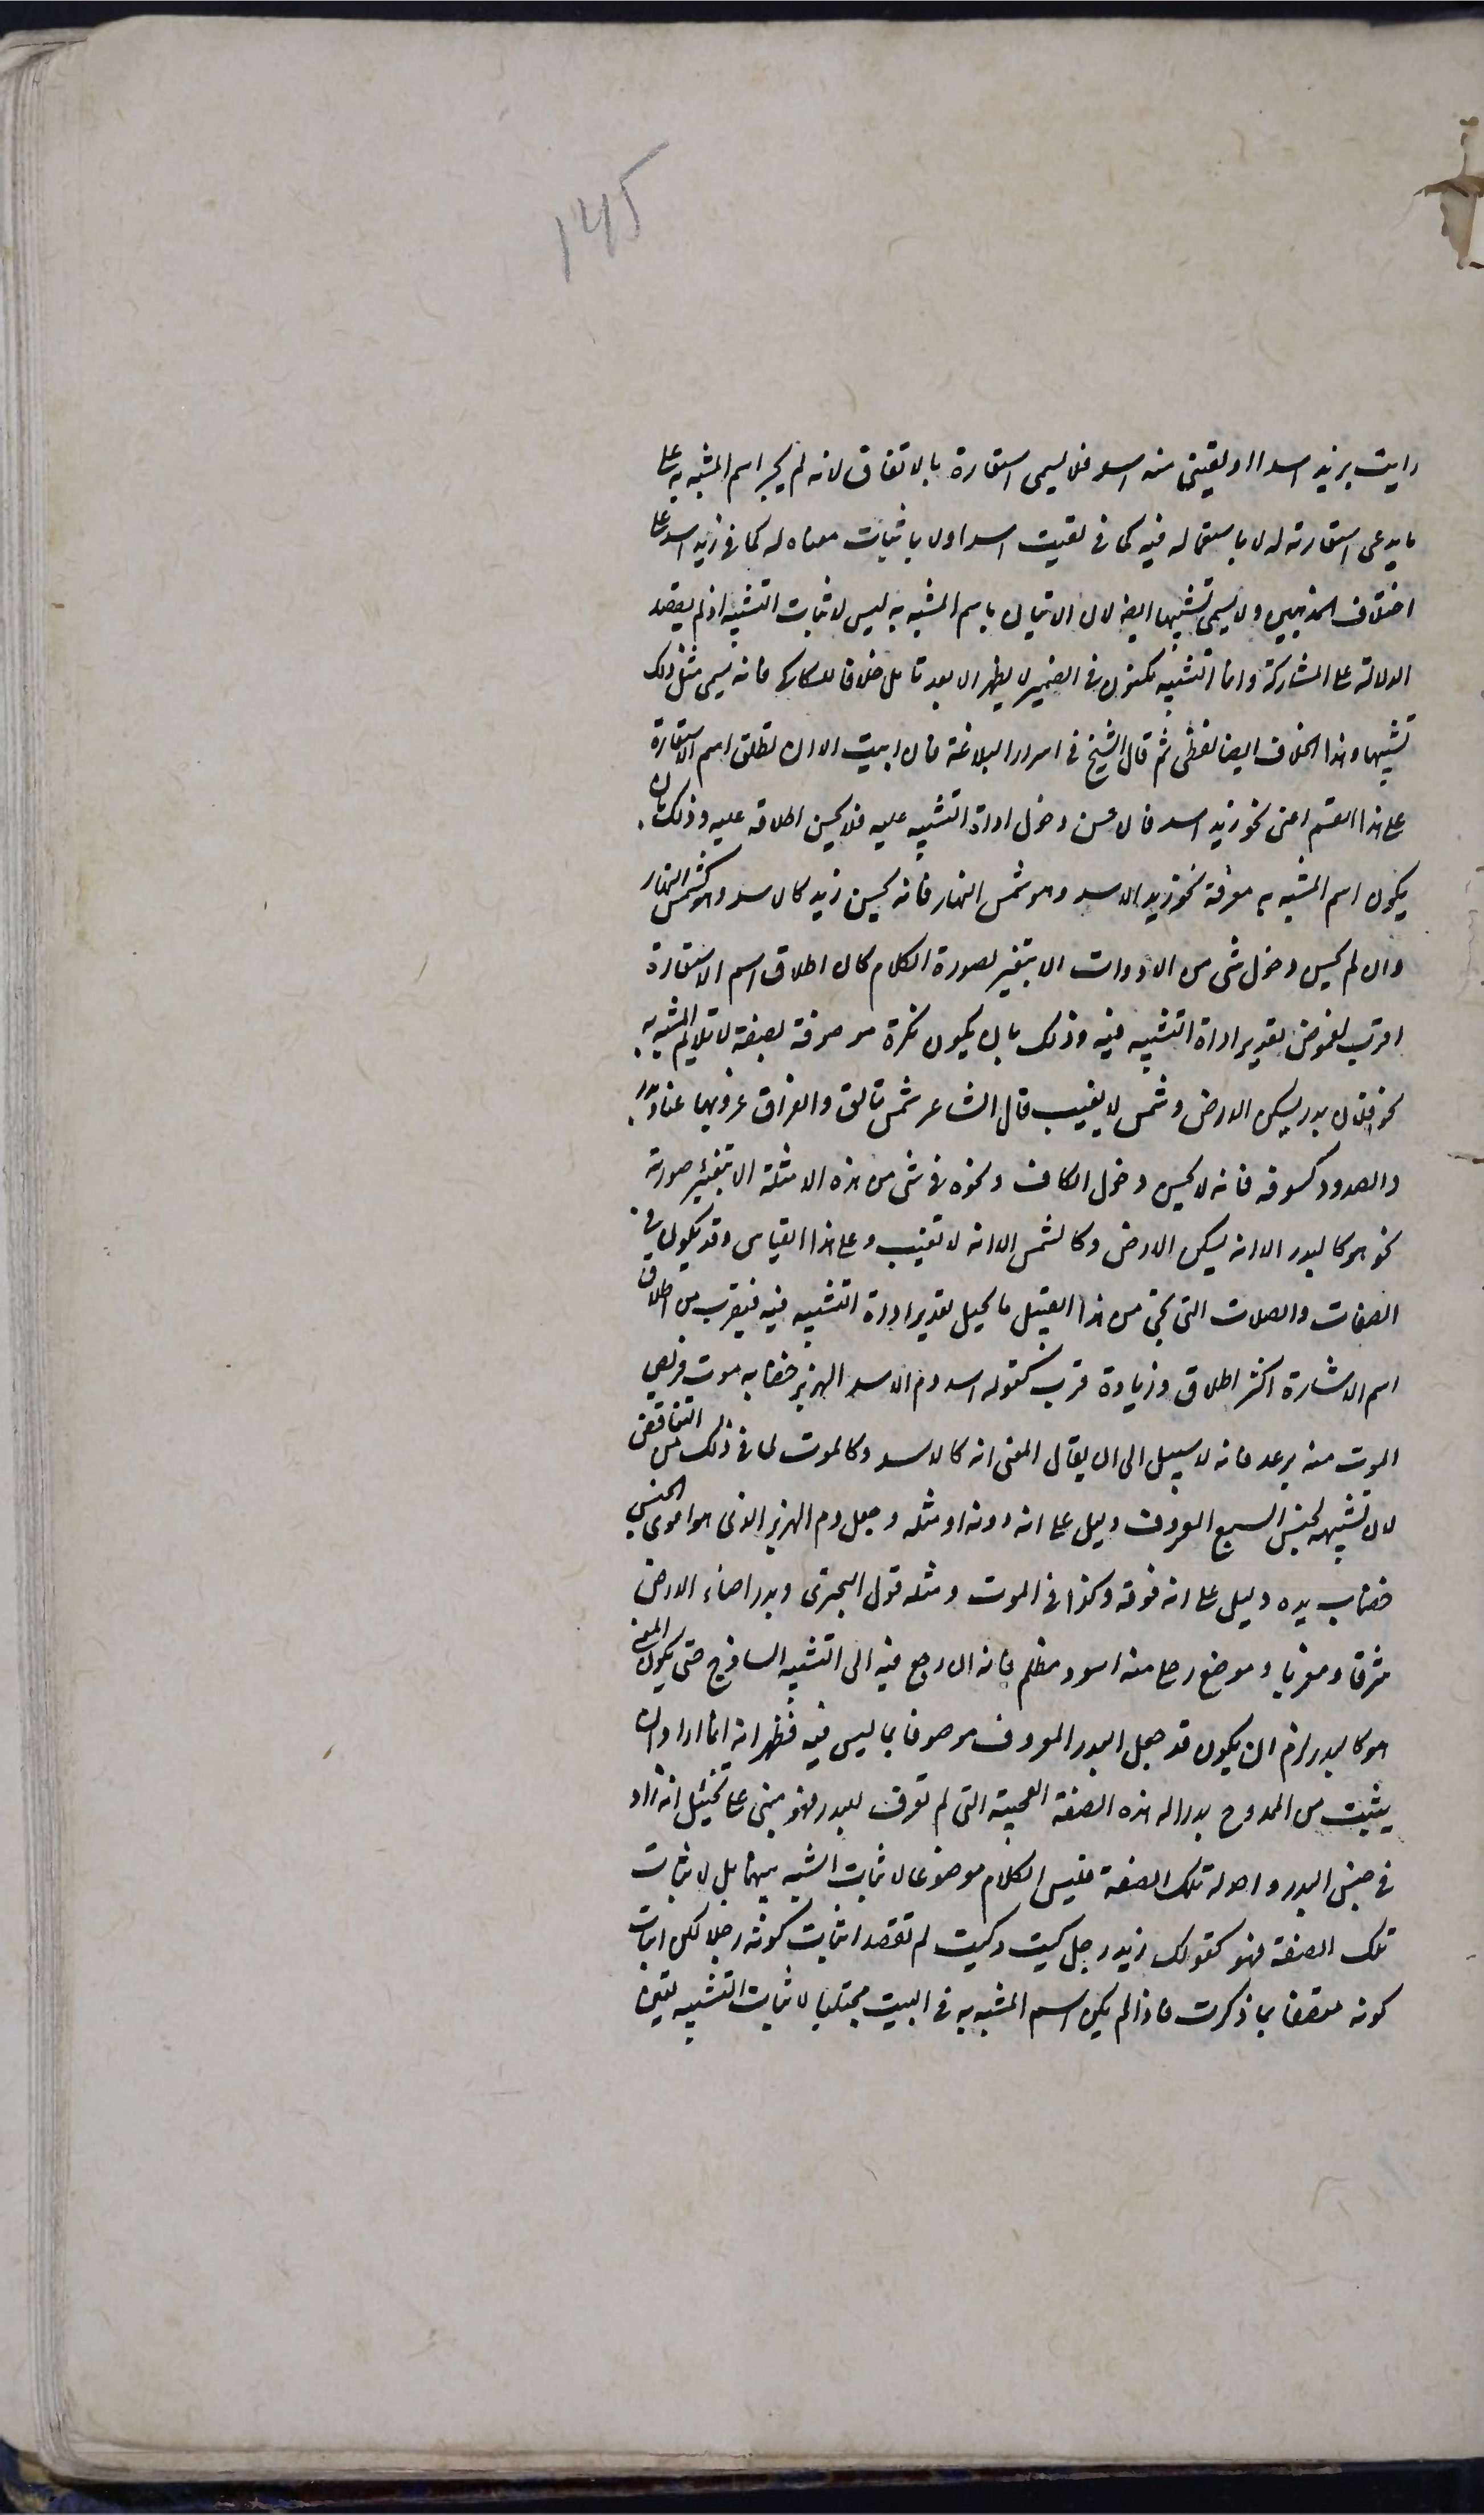 145
رايت بزيد اسدا او لقيني منه اسد فلا يسمى استعارة بالاتفاق لانه لم يجر اسم المشبه به على
ما يدعى استعارته له لا باستعماله فيه كما في لقيت اسدا ولا باثبات معناه له كما في زيد اسد على
اختلاف المذهبين ولا يسمى تشبيها ايضا لان الاتيان باسم المشبه به ليس لاثبات التشبيه اذ لم يقصد
الدلالة على المشاركة وانما التشبيه مكنون في الضمير لا يظهر الا بعد تامل خلافا للسكاكي فانه يسمى مثل ذلك
تشبيها وهذا الخلاف ايضا لفظى ثم قال الشيخ في اسرار البلاغة فان ابيت الا ان تطلق اسم الاستعارة
على هذا القسم اعنى نحو زيد اسد فان حسن دخول اداة التشبيه عليه فلا يحسن اطلاقه عليه وذلك بان
يكون اسم المشبه به معرفة نحو زيد الاسد وهو شمس النهار فانه يحسن زيد كالاسد وهو كشمس النهار
وان لم يحسن دخول شى من الادوات الا بتغير لصورة الكلام كان اطلاق اسم الاستعارة
اقرب لغموض تقدير اداة التشبيه فيه وذلك بان يكون نكرة موصوفة بصفة لا تلايم المشبه به
نحو فلان بدر يسكن الارض وشمس لا يغيب قال الشاعر شمس تالق والفراق غروبها عنا وبدر
والصدود كسوفه فانه لا يحسن دخول الكاف ونحوه في شى من هذه الامثلة الا بتغيير صورته
نحو هو كالبدر الا انه يسكن الارض وكالشمس الا انه لا تغيب وعلى هذا القياس وقد يكون في
الصفات والصلات التى تجئ من هذا القبيل ما يحيل تقدير اداة التشبيه فيه فيقرب من اطلاق
اسم الاشارة اكثر اطلاق وزيادة قرب كقوله اسد دم الاسد الهزبر خضابه موت فريص
الموت منه يرعد فانه لا سبيل الى ان يقال المعنى انه كالاسد وكالموت لما في ذلك من التناقض
لان تشبيهه بجنس السبع المعروف دليل على انه دونه او مثله وجعل دم الهزبر الذى هو اقوى الجنس
خضاب يده دليل على انه فوقه وكذا في الموت ومثله قول البحترى وبدر اضاء الارض
شرقا ومغربا وموضع رحلى منه اسود مظلم فانه ان رجع فيه الى التشبيه الساذج حتى يكون المعنى
هو كالبدر لزم ان يكون قد جعل البدر المعروف موصوفا بما ليس فيه فظهر انه انما اراد ان
يثبت من الممدوح بدرا له هذه الصفة العجيبة التى لم تعرف للبدر فهو مبنى على تخييل انه زاد
في جنس البدر واحد له تلك الصفة فليس الكلام موضوعا لاثبات الشبه بينهما بل لاثبات
تلك الصفة فهو كقولك زيد رجل كيت وكيت لم تقصد اثبات كونه رجلا لكن اثبات
كونه متصفا بما ذكرت فاذا لم يكن اسم المشبه به في البيت مجتلبا لاثبات التشبيه تعين